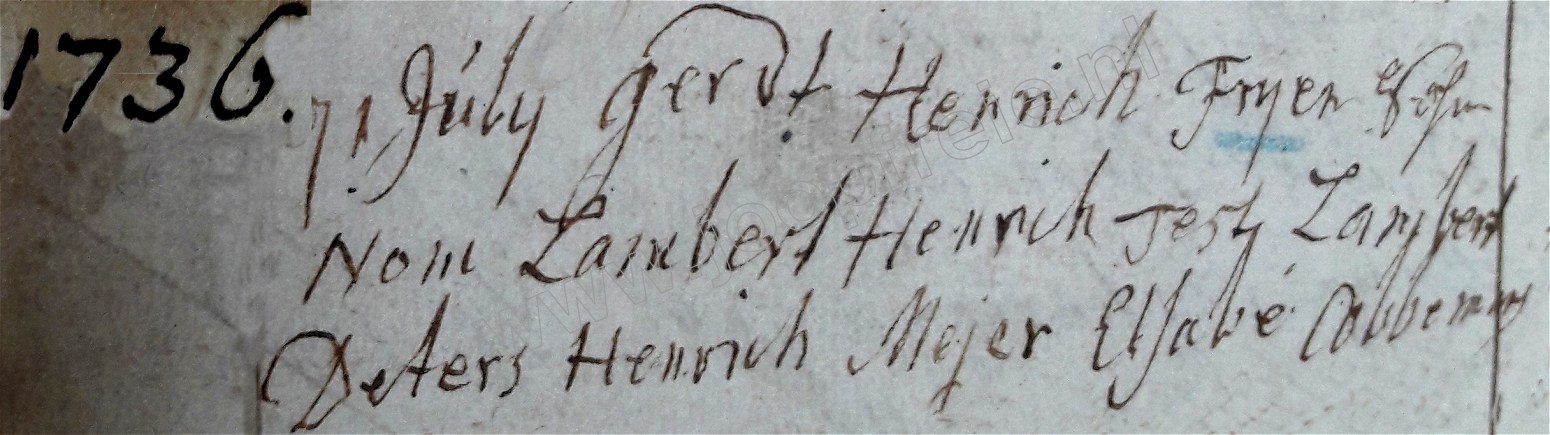 1736.
71 July Gerdt Henrich Fryen Sohn
Nom Lambert Henrich Test Lambert
Deters Henrich Mejer Elsabé Cobbemeyers